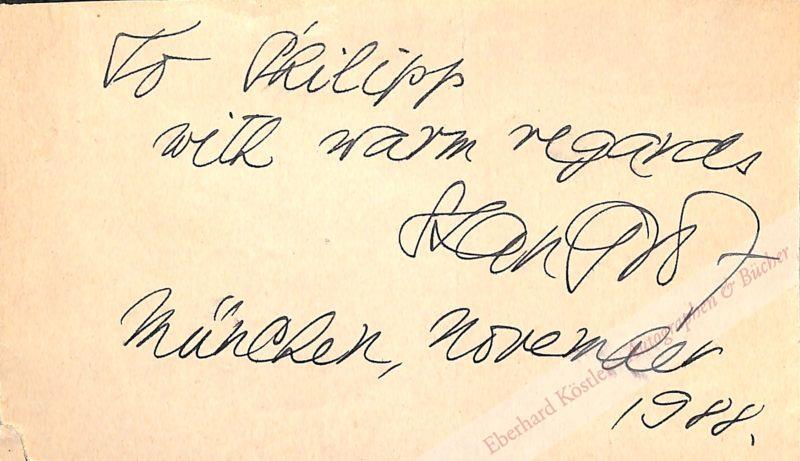 To Philipp
with warm regards
Stan Grof
München, November
1988.
Eberhard Köstler Autographen & Bücher